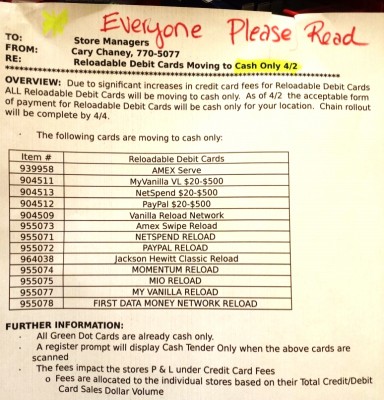 Everyone Please Read
TO: Store Managers
FROM: Cary Chaney, 770-5077
RE: Reloadable Debit Cards Moving to Cash Only 4/2
OVERVIEW: Due to significant increases in credit card fees for Reloadable Debit Cards
ALL Reloadable Debit Cards will be moving to cash only. As of 4/2 the acceptable form
of payment for Reloadable Debit Cards will be cash only for your location. Chain rollout
will be complete by 4/4.
· The following cards are moving to cash only:
Item # Reloadable Debit Cards
939958 AMEX Serve
904511 MyVanilla VL $20-$500
904513 NetSpend $20-$500
904512 PayPal $20-$500
904509 Vanilla Reload Network
955073 Amex Swipe Reload
955071 NETSPEND RELOAD
955072 PAYPAL RELOAD
964038 Jackson Hewitt Classic Reload
955074 MOMENTUM RELOAD
955075 MIO RELOAD
955077 MY VANILLA RELOAD
955078 FIRST DATA MONEY NETWORK RELOAD
FURTHER INFORMATION:
· All Green Dot Cards are already cash only.
· A register prompt will display Cash Tender Only when the above cards are
scanned
· The fees impact the stores P & L under Credit Card Fees
o Fees are allocated to the individual stores based on their Total Credit/Debit
Card Sales Dollar Volume